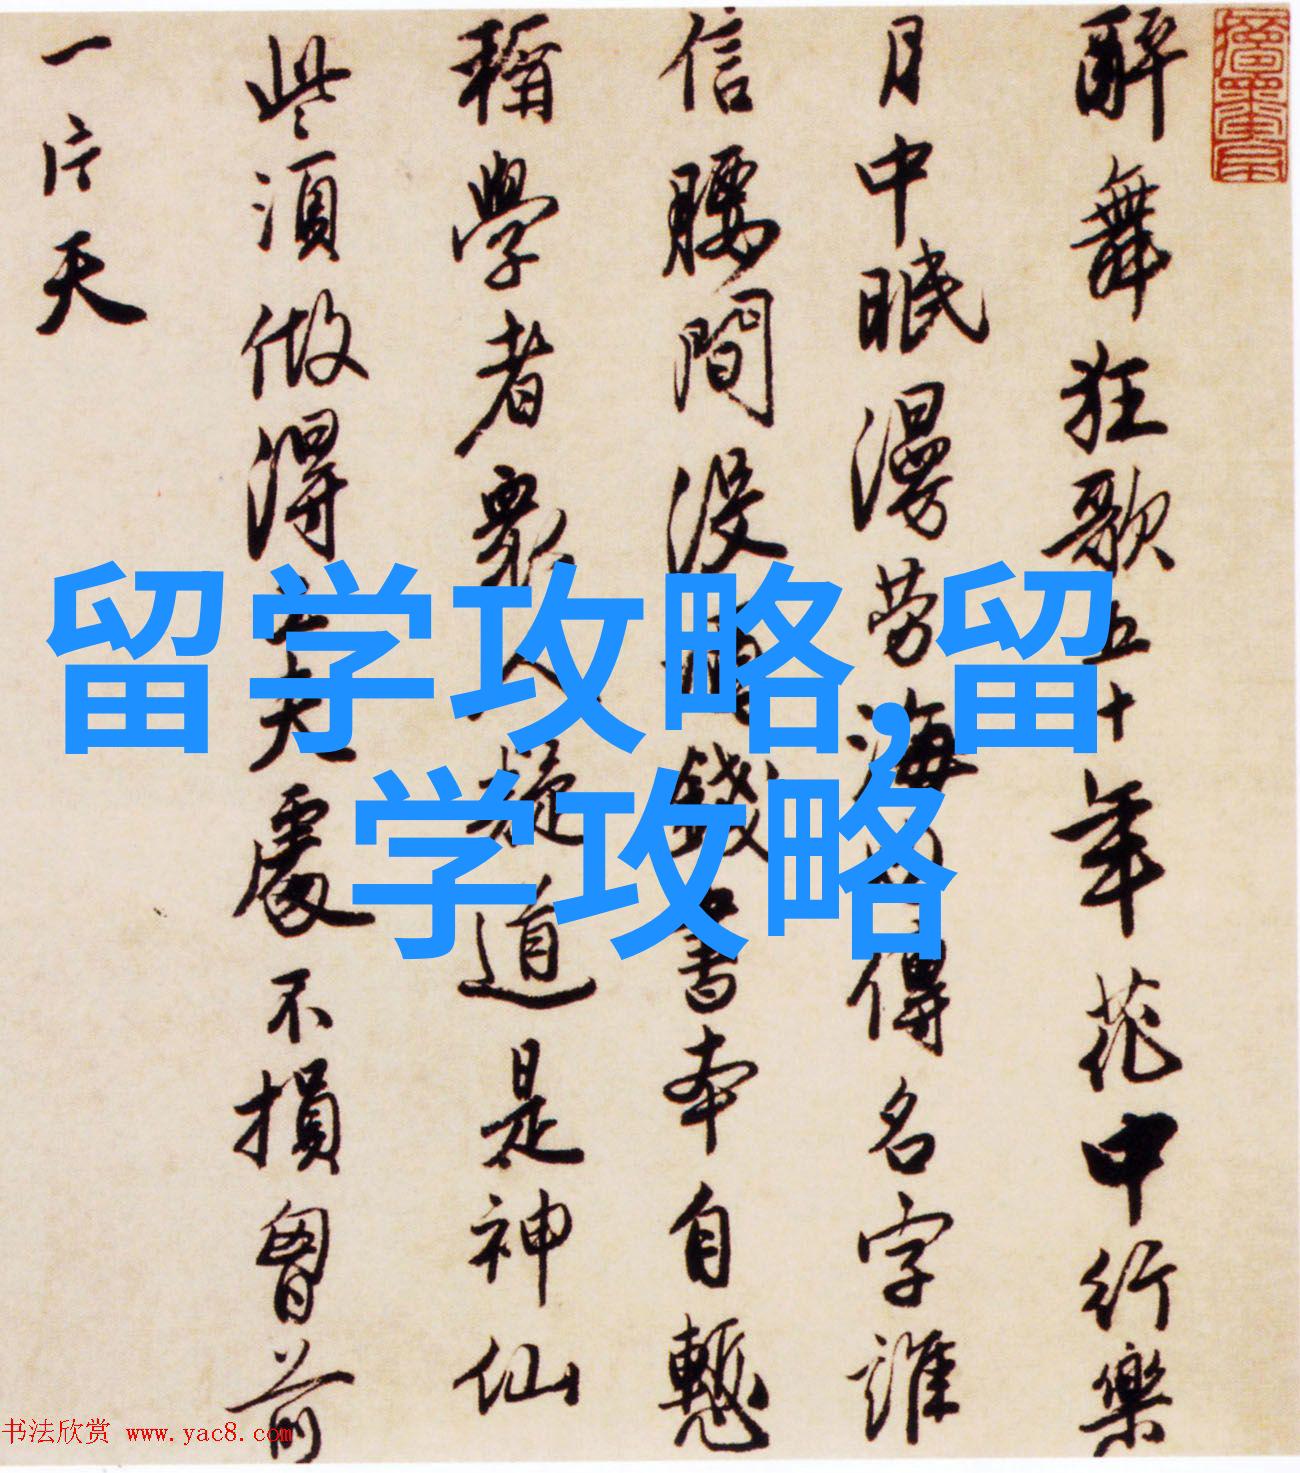 醉舞狂歌五十年花中行樂
月中眠漫勞海內得名字誰
信腰間沒酒錢書本自慙
稱學者眾人疑道是神仙
些須做得工夫處不損胸前
一片天
留学攻略,留
学攻略
书法欣赏 www.yac8.com